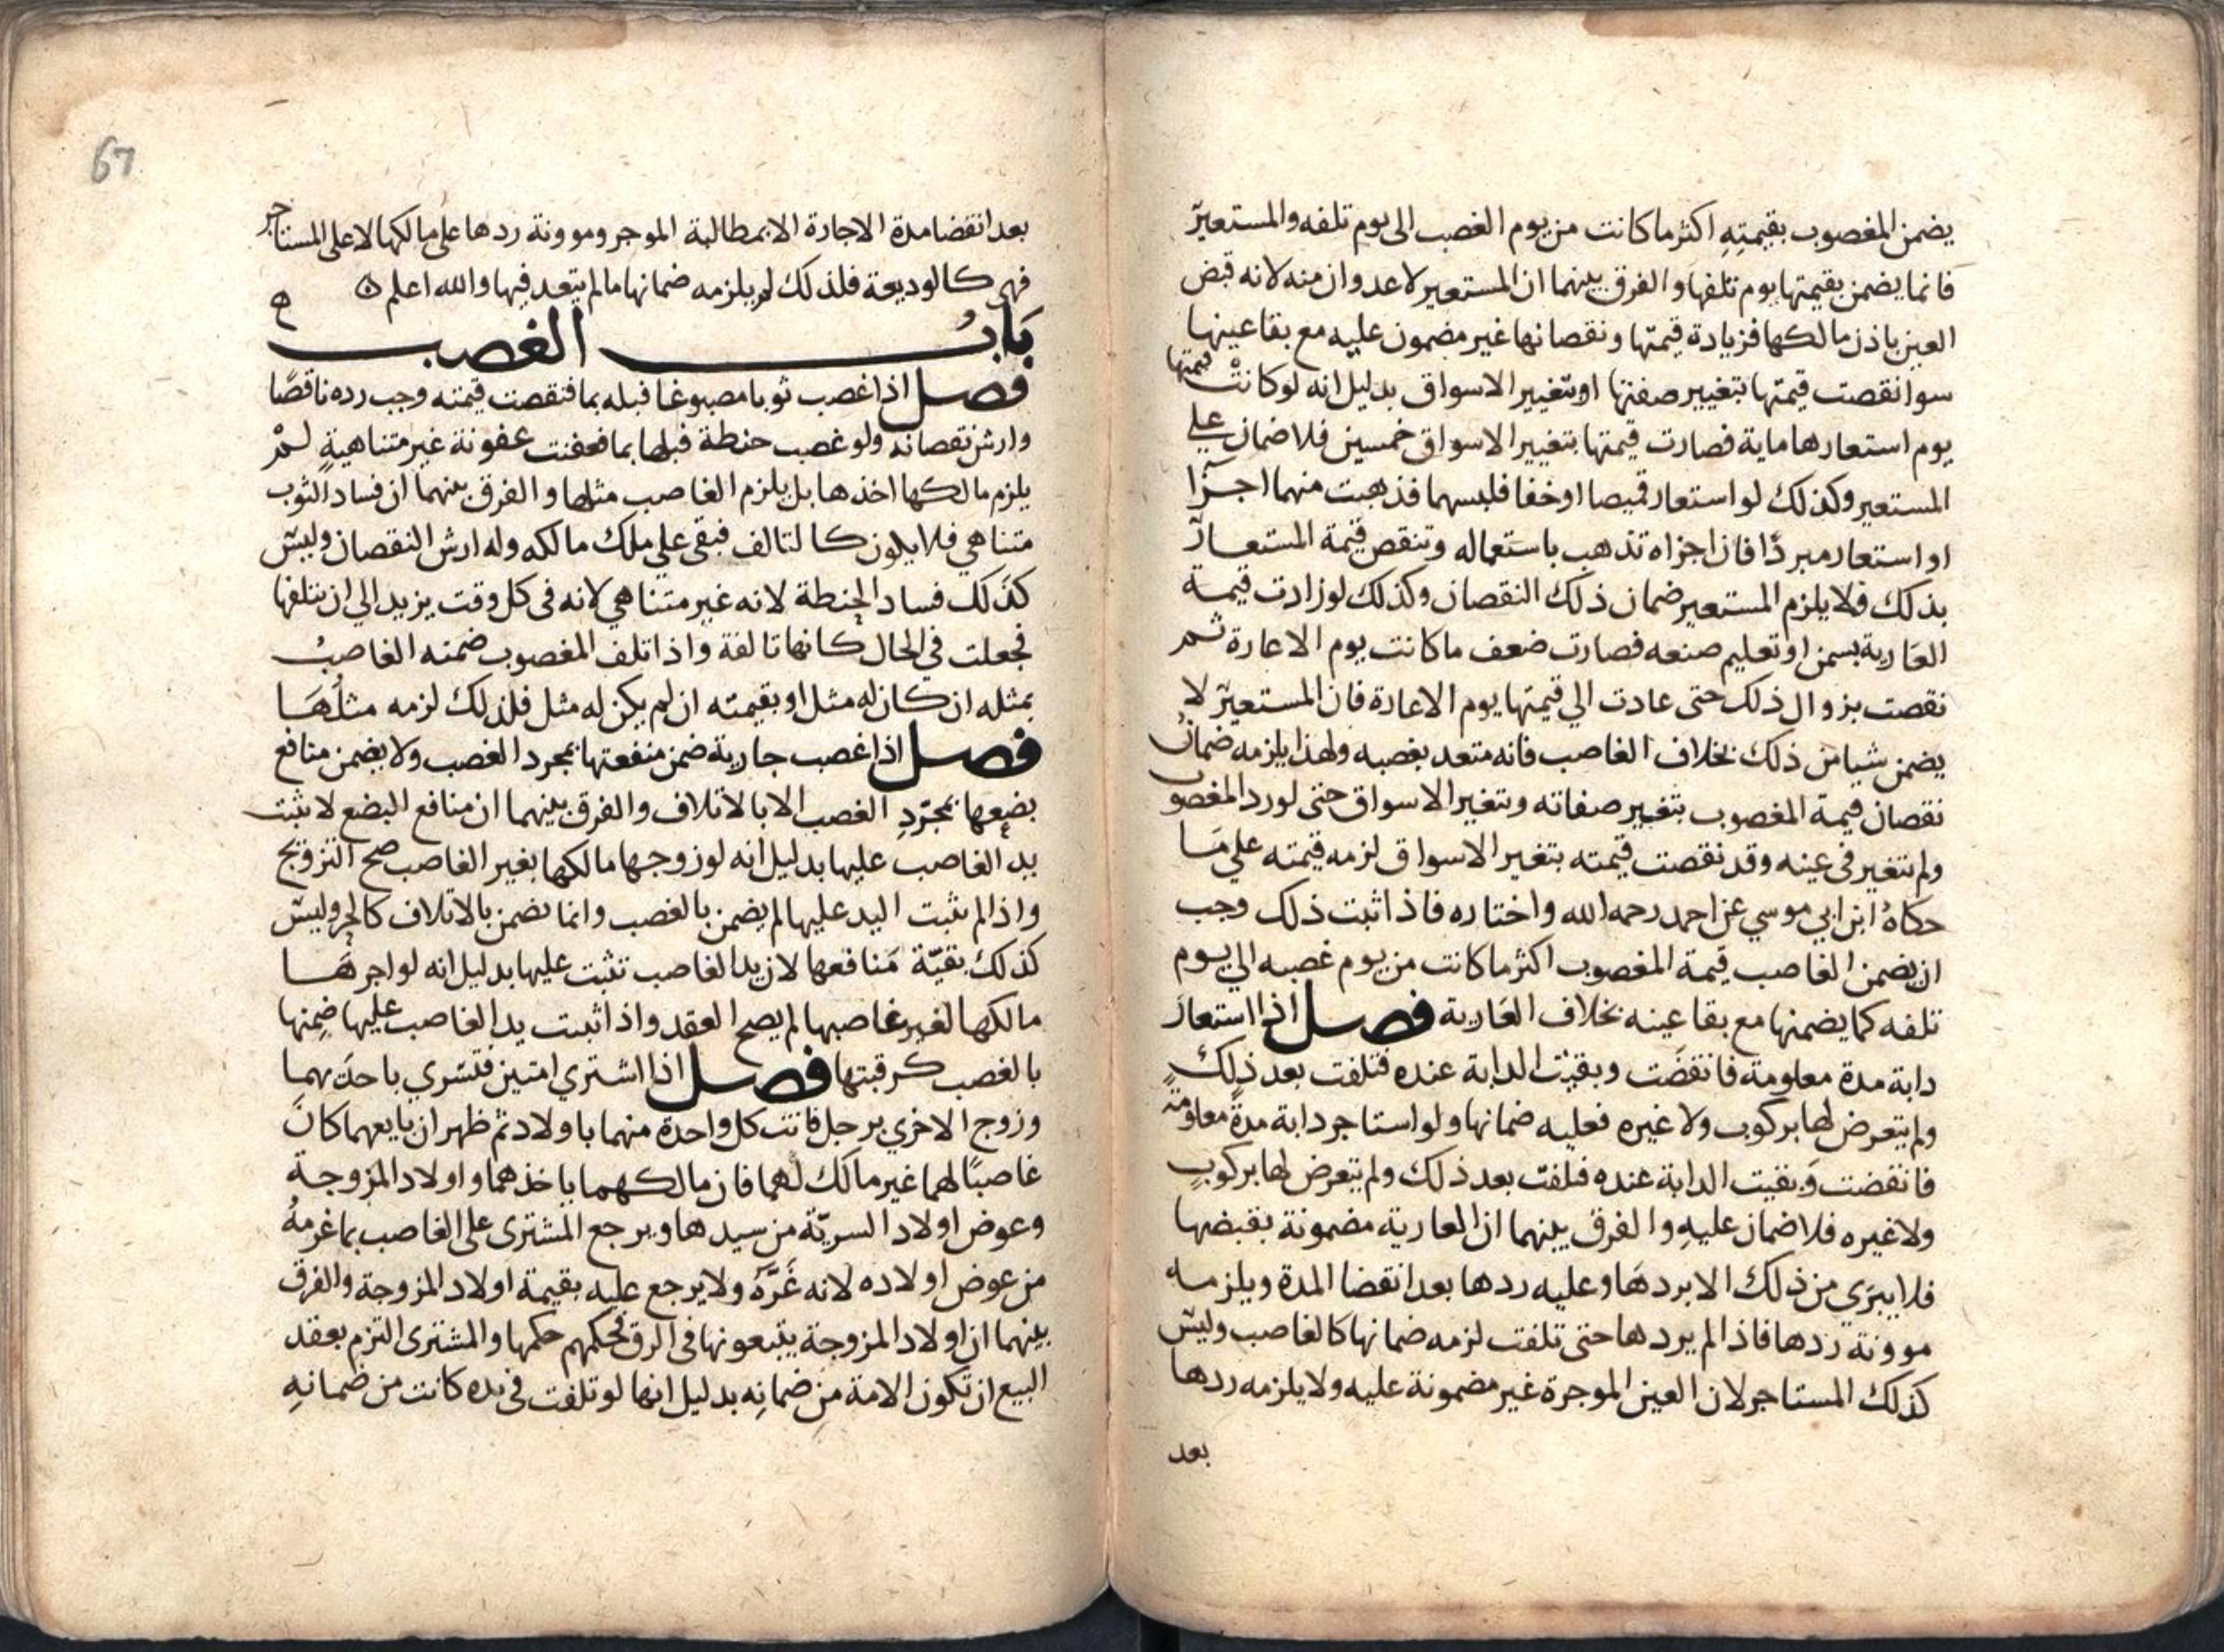 يضمن المغصوب بقيمتِهِ اكثر ما كانت من يوم الغصب الى يوم تلفه والمستعير
فانما يضمن بقيمتها يوم تلفها والفرق بينهما ان المستعير لا عدوان منه لانه قبض
العين باذن مالكها فزيادة قيمتها ونقصانها غير مضمون عليه مع بقا عينها
سوا نقصت قيمتها بتغيير صفتها او بتغيير الاسواق بدليل انه لو كانتْ قيمتها
يوم استعارها ماية فصارت قيمتها بتغيير الاسواق خمسين فلا ضمان علي
المستعير وكذلك لو استعار قميصا او خفا فلبسهما فذهبت منهما اجزا
او استعار مبردًا فان اجزاه تذهب باستعماله وتنقص قيمة المستعار
بذلك فلا يلزم المستعير ضمان ذلك النقصان وكذلك لو زادت قيمة
العارية بسمن او تعليم صنعه فصارت ضعف ما كانت يوم الاعارة ثم
نقصت بزوال ذلك حتى عادت الي قيمتها يوم الاعارة فان المستعير لا
يضمن شيا من ذلك بخلاف الغاصب فانه متعد بغصبه ولهذا يلزمه ضمان
نقصان قيمة المغصوب بتغيير صفاته وبتغير الاسواق حتى لو رد المغصوب
ولم يتغير في عينه وقد نقصت قيمته بتغير الاسواق لزمه قيمته علي ما
حكاهُ ابن ابي موسي عن احمد رحمه الله واختاره فاذا ثبت ذلك وجب
ان يضمن الغاصب قيمة المغصوب اكثر ما كانت من يوم غصبه الي يوم
تلفه كما يضمنها مع بقا عينه بخلاف العارية فصل اذا استعار
دابة مدة معلومة فانقضَت وبقيت الدابة عنده فتلفت بعد ذلك
ولم يتعرض لها بركوب ولا غيره فعليه ضمانها ولو استاجر دابة مدةً معلومةً
فانقضت وَبقيت الدابة عنده فتلفت بعد ذلك ولم يتعرض لها بركوبٍ
ولا غيره فلا ضمان عليهِ والفرق بينهما ان العارية مضمونة بقبضها
فلا يبرَي من ذلك الا بردهَا وعليه ردها بعد انقضا المدة ويلزمه
موونة ردها فاذا لم يردها حتى تلفت لزمه ضمانها كالغاصب وليس
كذلك المستاجر لان العين الموجرة غير مضمونة عليه ولا يلزمه ردها
بعد
67
بعد انقضا مدة الاجارة الا بمطالبة الموجر وموونة ردها على مالكها لا على المستاجر
فهي كالوديعة فلذلك لم يلزمه ضمانها ما لم يتعد فيها والله اعلم
بَابُ الغصب
فصل اذا غصب ثوبا مصبوغا فبله بما فنقصت قيمته وجب رده ناقصًا
وارش نقصانه ولو غصب حنطة فبلها بما فعفنت عفونة غير متناهيةٍ لمْ
يلزم مالكها اخذها بل يلزم الغاصب مثلها والفرق بينهما ان فساد الثوب
متناهي فلا يكون كالتالف فبقي علي ملك مالكه وله ارش النقصان وليس
كذَلك فساد الحنطة لانه غير متناهي لانه في كل وقت يزيد الي ان يتلفها
فجعلت في الحال كانها تالفة واذا تلف المغصوب ضمنه الغاصبُ
بمثله ان كان له مثل او بقيمته ان لم يكن له مثل فلذلك لزمه مثلُهَا
فصل اذا غصب جارية ضمن منفعتها بمجرد الغصب ولا يضمن منافع
بضعها بمجرّدِ الغصب الا بالاتلاف والفرق بينهما ان منافع البضع لا تثبت
يد الغاصب عليها بدليل انه لو زوجها مالكها بغير الغاصب صح التزويج
واذا لم تثبت اليد عليها لم يضمن بالغصب وانما تضمن بالاتلاف كالحر وليس
كذلك بقيّة مَنافعها لان يد الغاصب تثبت عليها بدليل انه لو اجرهَا
مالكها لغير غاصبها لم يصح العقد واذا ثبت يد الغاصب عليها ضمِنها
بالغصب كرقبتها فصل اذا اشتري امتين فتسّري باحدَيهما
وزوج الاخري برجل فاتت كل واحدة منهما باولاد ثم ظهر ان بايعهما كانَ
غاصبًا لهما غير مالك لهما فان مالكهما ياخذهما واولاد المزوجة
وعوض اولاد السريّة من سيدها ويرجع المشتري على الغاصب بما غرمهُ
من عوض اولاده لانه غَرَّهُ ولا يرجع عليه بقيمة اولاد المزوجة والفرق
بينهما ان اولاد المزوجة يتبعونها في الرق فحكمهم حكمها والمشترى التزم بعقد
البيع ان تكون الامة من ضمانِه بدليل انها لو تلفت في يده كانت من ضمانِهِ